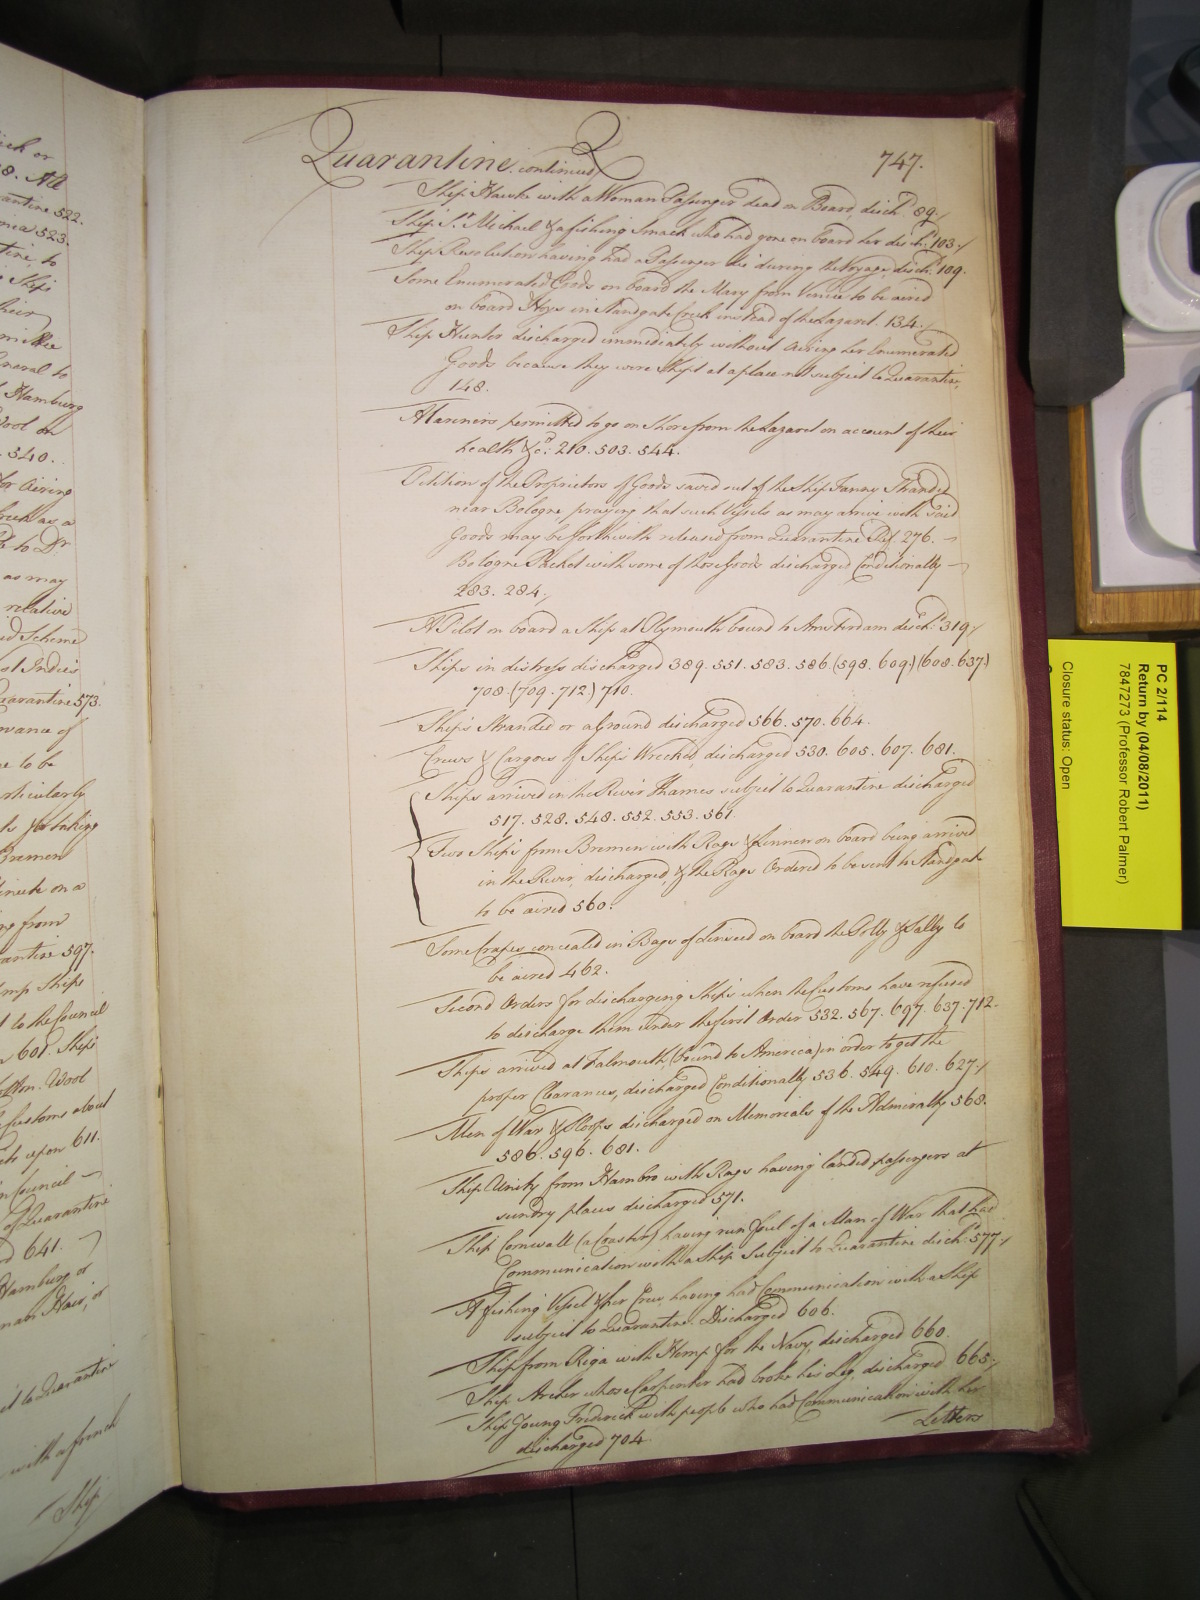 Quarantine continued
747.
Ship Hawke with a Woman Passenger dead on Board, disch.d 89./
Ship St. Michael & a fishing Smack who had gone on board her disch.d 103./
Ship Resolution having had a Passenger die during the Voyage, disch.d 109.
Some Enumerated Goods on board the Mary from Venice to be aired
on board Hoys in Standgate Creek instead of the Lazaret. 134./
Ship Hunter discharged immediately without Airing her Enumerated
Goods because they were Shipt at a place not subject to Quarantine,
148.
Mariners permitted to go on Shore from the Lazaret on account of their
health &c.a 210. 503. 544.
Petition of the Proprietors of Goods saved out of the Ship Fanny Stranded
near Bologne, praying that such Vessels as may arrive with said
Goods may be forthwith released from Quarantine Ref. 276. –
Bologne Packet with some of those Goods discharged Conditionally –
283. 284./
A Pilot on board a Ship at Plymouth bound to Amsterdam disch.d 319/
Ships in distress discharged 389. 551. 583. 586. (598. 609.) (608. 637.)
708. (709. 712.) 710.
Ships Stranded or aGround discharged 566. 570. 664.
Crews & Cargoes of Ships Wrecked, discharged 530. 605. 607. 681.
Ships arrived in the River Thames subject to Quarantine discharged
517. 528. 548. 552. 553. 561.
Two Ships from Bremen with Rags & Linnen on board being arrived
in the River, discharged, & the Rags Ordered to be sent to Standgate
to be aired 560.
Some Crapes concealed in Bags of Linseed on board the Polly & Sally to
be aired 462.
Second Orders for discharging Ships when the Customs have refused
to discharge them under the first Order 532. 567. 697. 637. 712.
Ships arrived at Falmouth, (bound to America) in order to get the
proper Clearances, discharged Conditionally 536. 549. 610. 627./
Men of War & Sloops discharged on Memorials of the Admiralty 568.
586. 596. 681.
Ship Unity from Hambro with Rags having landed passengers at
sundry places discharged 571.
Ship Cornwall (a Coaster) having run foul of a Man of War that had
Communication with a Ship Subject to Quarantine disch.d 577./
A fishing Vessel & her Crew having had Communication with a Ship
subject to Quarantine. Discharged 606.
Ship from Riga with Hemp for the Navy, discharged 660.
Ship Archer whose Carpenter had broke his Leg, discharged 665./
Ship Young Frederick with people who had Communication with her
discharged 704.
Letters
PC 2/114
Return by (04/08/2011)
7847273 (Professor Robert Palmer)
Closure status: Open